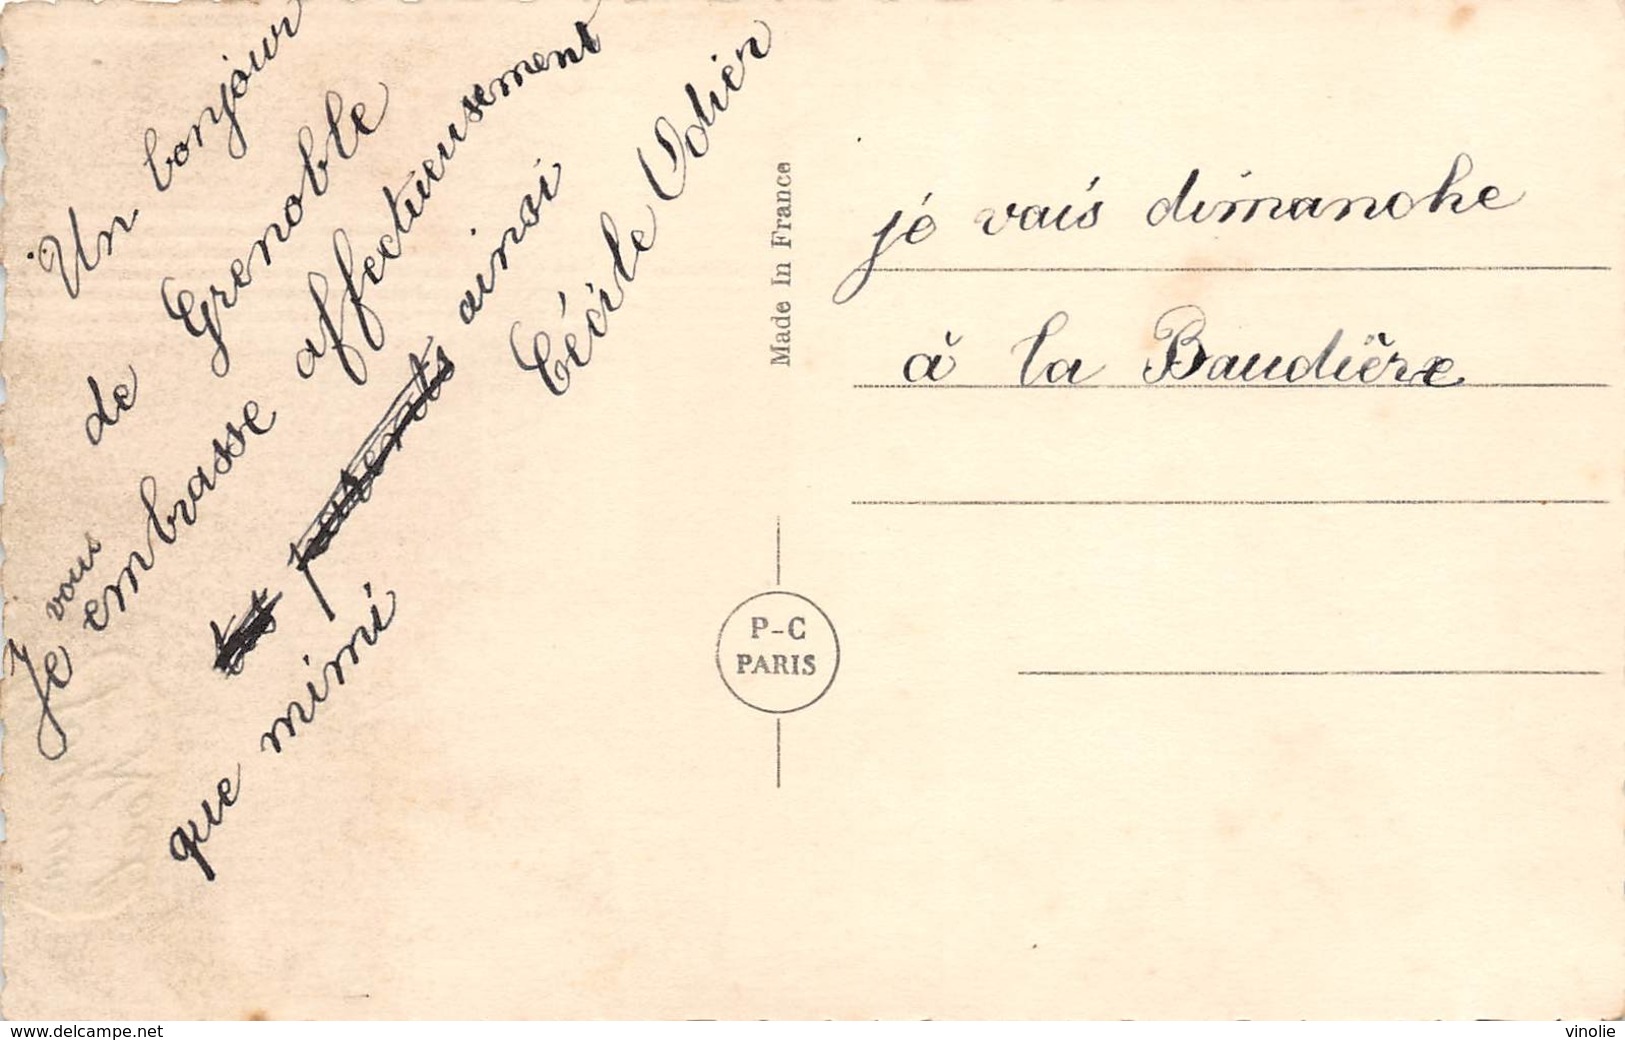 Un bonjour
de Grenoble
Je vous embrasse affectueusement
ainsi
que mimi
Cécile Odier
Made In France
P-C
PARIS
je vais dimanche
à la Baudière
www.delcampe.net
vinolie